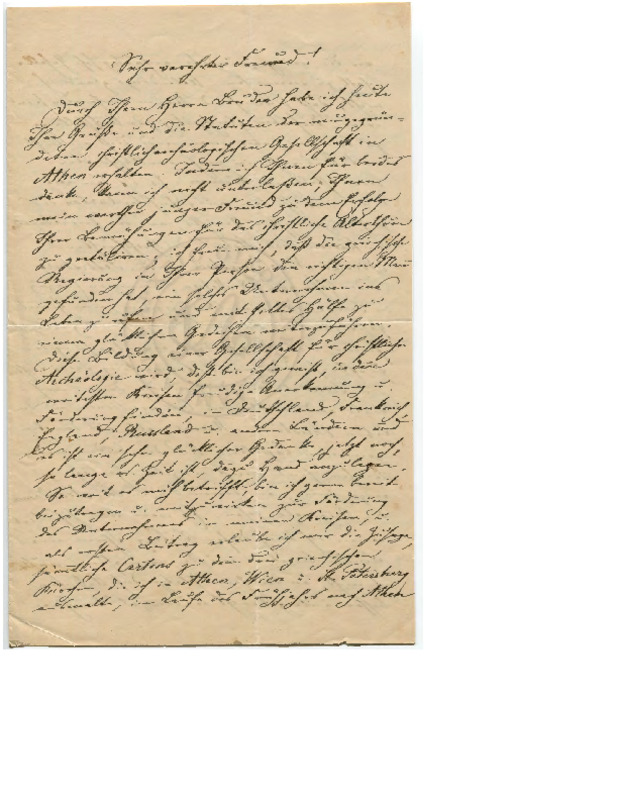 Sehr verehrter Freund!
Durch Ihren Herrn Bruder habe ich heute
Ihre Grüße und die Statuten der neugegrün-
deten christlicharchäologischen Gesellschaft in
Athen erhalten. Indem ich Ihnen für beides
danke, kann ich nicht unterlaßen, Ihnen
mein werther junger Freund zu dem Erfolge
Ihrer Bemühungen für das christliche Alterthum
zu gratuliren; ich freue mich, daß die griechische
Regierung in Ihrer Person den richtigen Mann
gefunden hat, ein solches Unternehmen ins
Leben zu rufen und mit Gottes Hülfe zu
einem glücklichen Gedeihen weiterzuführen.
Diese Bildung einer Gesellschaft für christliche
Archäologie wird, deß bin ich gewiß, in den
weitesten Kreisen freudige Anerkennung u.
Förderung finden, in Deutschland, Frankreich
England, Russland u. andern Ländern und
es ist ein sehr glücklicher Gedanke, jetzt noch,
so lange es Zeit ist, dazu Hand anzulegen.
So weit es mich betrifft, bin ich gerne bereit
beizutragen u. mitzuwirken zur Förderung
des Unternehmens in meinen Kreisen, u.
als ersten Beitrag erlaube ich mir die Zusage,
sämtliche Cartons zu den drei griechischen
Kirchen, die ich in Athen, Wien u. St. Petersburg
ausmalte, im Laufe des Frühjahrs nach Athen